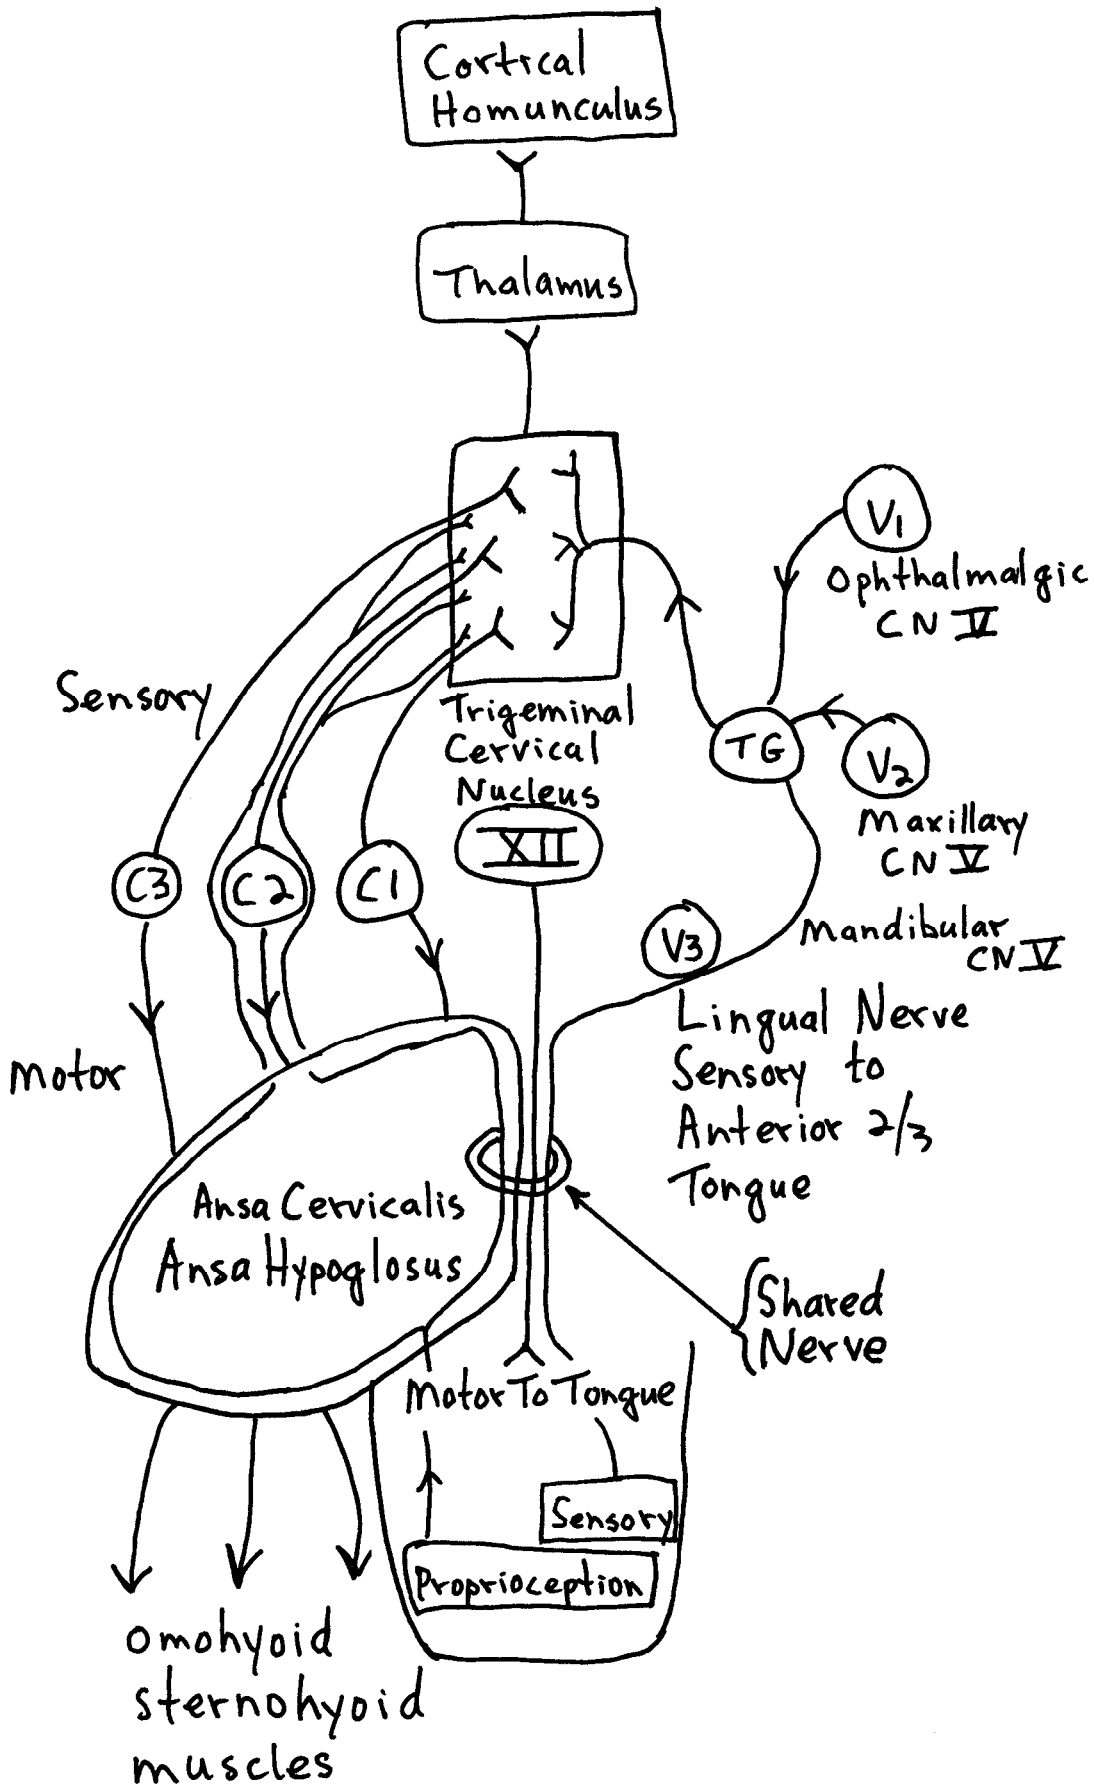 Cortical
Homunculus
Thalamus
V1
Ophthalmalgic
CN V
Sensory
Trigeminal
Cervical
Nucleus
TG
V2
Maxillary
CN V
XII
C3
C2
C1
V3
Mandibular
CN V
Lingual Nerve
Sensory to
Anterior 2/3
Tongue
Motor
Ansa Cervicalis
Ansa Hypoglosus
Shared
Nerve
Motor To Tongue
Sensory
Proprioception
omohyoid
sternohyoid
muscles